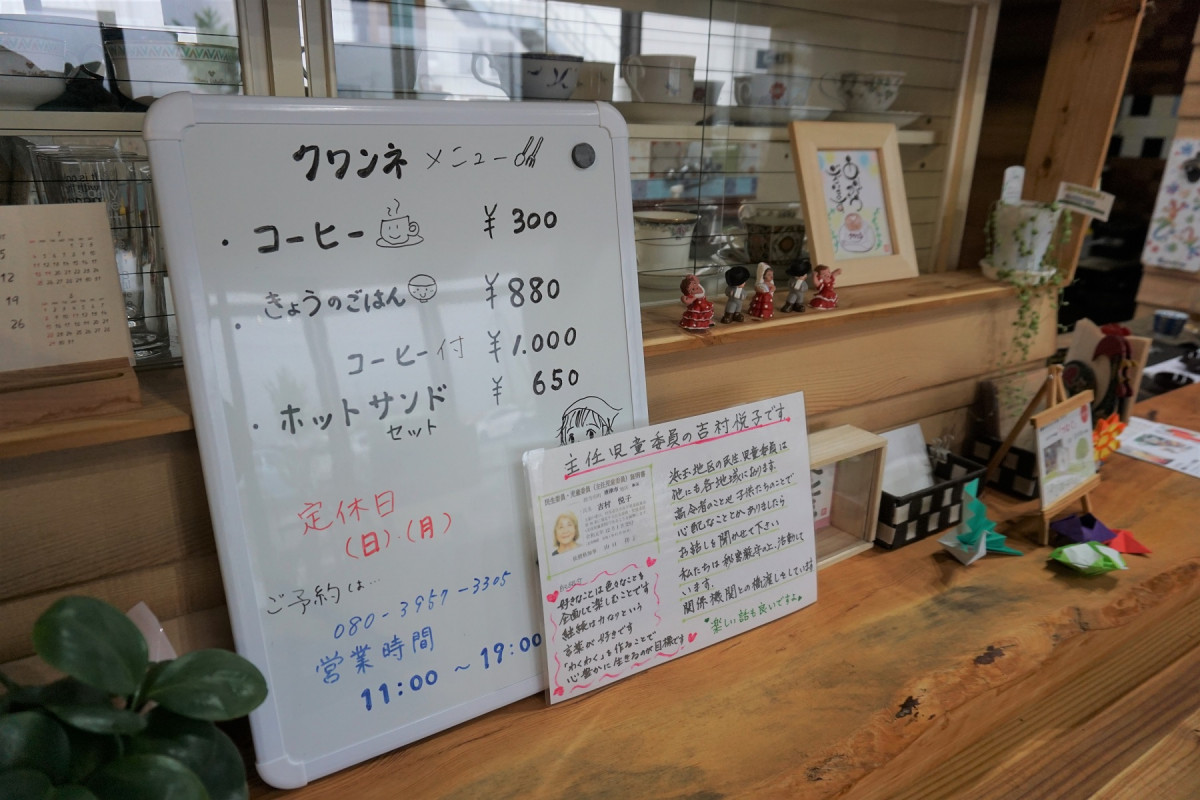 クワンネ メニュー
・コーヒー ¥300
・きょうのごはん ¥880
コーヒー付 ¥1.000
・ホットサンド ¥650
セット
定休日
(日)・(月)
ご予約は…
080-3957-3305
営業時間
11:00 ~ 19:00
主任児童委員の吉村悦子です
吉村 悦子
好きなことは色々なことを
企画して楽しむことです
継続は力なりという
言葉が好きです
「わくわく」を作ることで
心豊かに生きるのが目標です
地区の民生児童委員は
他にも各地域に居ります
高令者のことや子供たちのことで
心配なこととかありましたら
お話しを聞かせて下さい
私たちは秘密厳守の上、活動して
います。
関係機関との橋渡しもしています
楽しい話も良いですよ
5
12
19
26